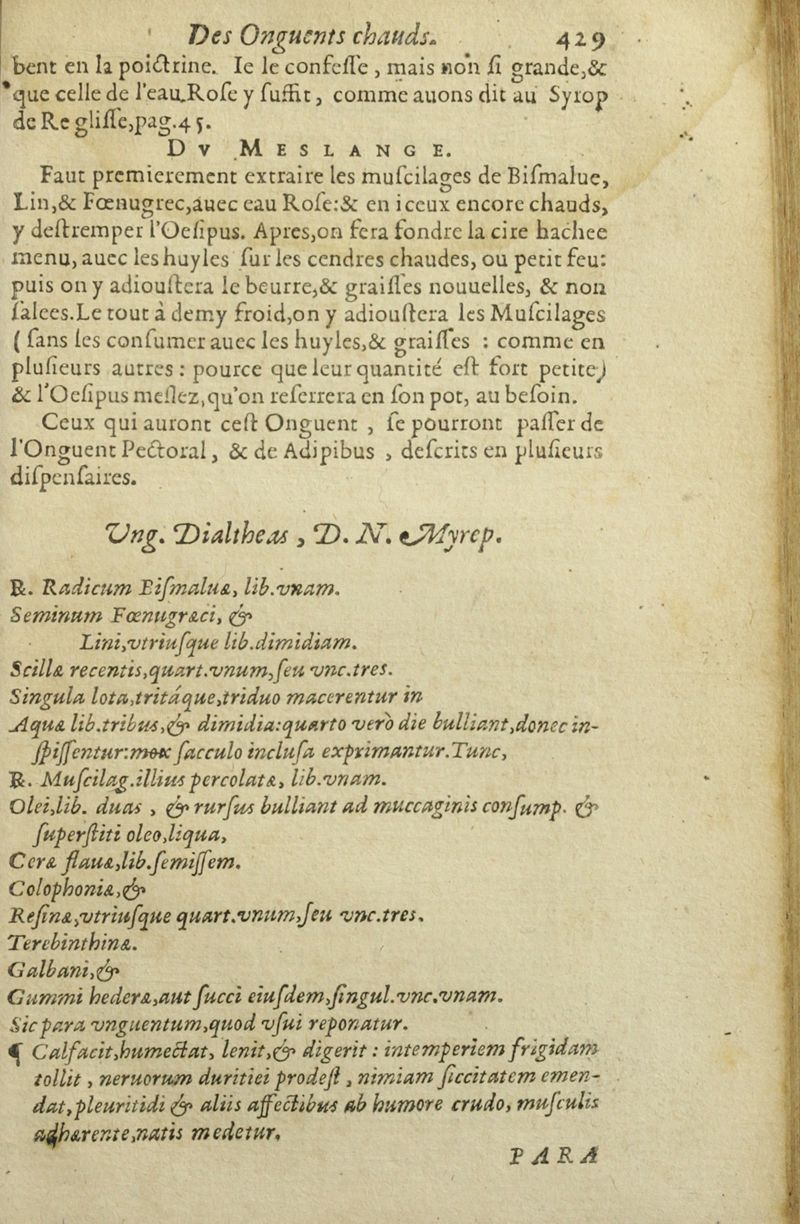 Des Onguents chauds. 429
bent en la poictrine. Ie le confeſſe, mais non ſi grande,&
que celle de l'eau.Roſe y ſuffit, comme auons dit au Syrop
de Re gliſſe,pag.45.
Dv MESLANGE.
Faut premierement extraire les muſcilages de Biſmalue,
Lin,& Fœnugrec,auec eau Roſe:& en iceux encore chauds,
y deſtremper l'Oeſipus. Apres,on fera fondre la cire hachee
menu, auec les huyles ſur les cendres chaudes, ou petit feu:
puis on y adiouſtera le beurre,& graiſſes nouuelles, & non
ſalees.Le tout à demy froid,on y adiouſtera les Muſcilages
( ſans les conſumer auec les huyles,& graiſſes : comme en
pluſieurs autres : pource que leur quantité eſt fort petite)
& l'Oeſipus meſlez,qu'on reſerrera en ſon pot, au beſoin.
Ceux qui auront ceſt Onguent , ſe pourront paſſer de
l'Onguent Pectoral, & de Adipibus , deſcrits en pluſieurs
diſpenſaires.
Vng. Dialtheas, D. N. Myrep.
℞. Radicum Biſmaluæ, lib.vnam.
Seminum Fœnugræci, &
Lini,vtriuſque lib.dimidiam.
Scillæ recentis,quart.vnum,ſeu vnc.tres.
Singula lota,tritáque,triduo macerentur in
Aquæ lib.tribus,& dimidia:quarto vero die bulliant,donec in-
ſpiſſentur:mox ſacculo incluſa exprimantur.Tunc,
℞. Muſcilag.illius percolatæ, lib.vnam.
Olei,lib. duas , & rurſus bulliant ad muccaginis conſump. &
ſuperſtiti oleo,liqua,
Ceræ flauæ,lib.ſemiſſem.
Colophoniæ,&
Reſinæ,vtriuſque quart.vnum,ſeu vnc.tres.
Terebinthinæ.
Galbani,&
Gummi hederæ,aut ſucci eiuſdem,ſingul.vnc.vnam.
Sic para vnguentum,quod vſui reponatur.
¶ Calfacit,humectat, lenit,& digerit : intemperiem frigidam
tollit , neruorum duritiei prodeſt , nimiam ſiccitatem emen-
dat,pleuritidi & aliis affectibus ab humore crudo, muſculis
adhærente,natis medetur.
PARA